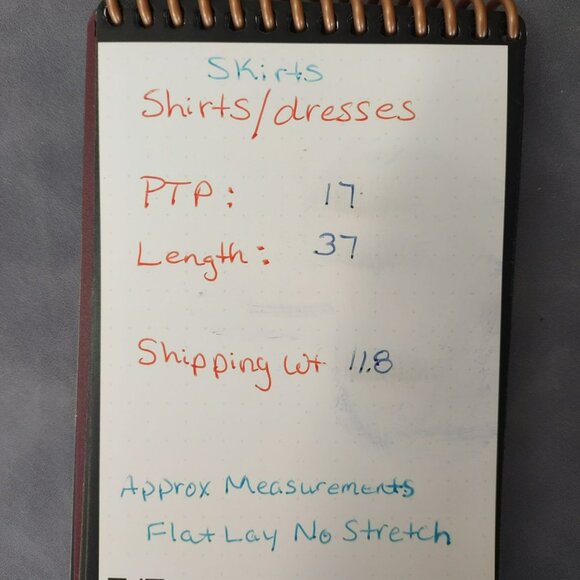 Skirts
Shirts/dresses
PTP: 17
Length: 37
Shipping wt 11.8
Approx Measurements
Flat Lay No Stretch